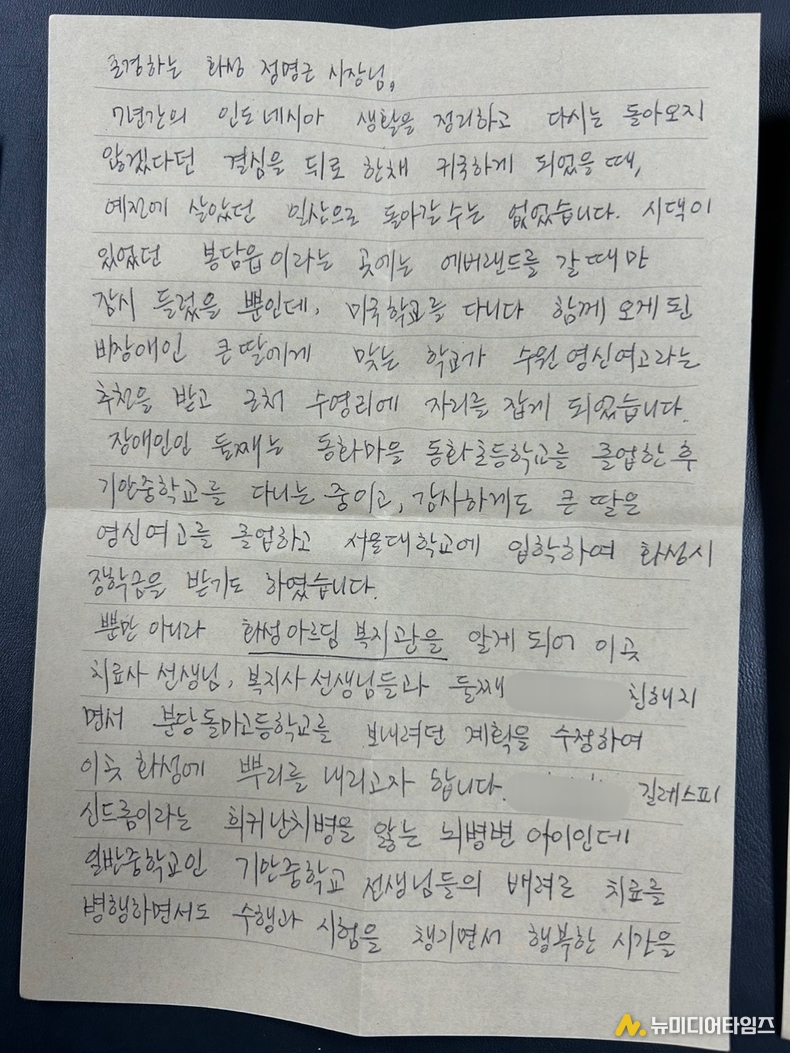 존경하는 화성 정명근 시장님,
7년간의 인도네시아 생활을 정리하고 다시는 돌아오지
않겠다던 결심을 뒤로 한채 귀국하게 되었을 때,
예전에 살았던 일산으로 돌아갈 수는 없었습니다. 시댁이
있었던 봉담읍이라는 곳에는 에버랜드를 갈 때만
잠시 들렀을 뿐인데, 미국학교를 다니다 함께 오게 된
비장애인 큰 딸에게 맞는 학교가 수원 영신여고라는
추천을 받고 근처 수영리에 자리를 잡게 되었습니다.
장애인인 둘째는 동화마을 동화초등학교를 졸업한 후
기안중학교를 다니는 중이고, 감사하게도 큰 딸은
영신여고를 졸업하고 서울대학교에 입학하여 화성시
장학금을 받기도 하였습니다.
뿐만 아니라 화성아르딤복지관을 알게 되어 이곳
치료사 선생님, 복지사 선생님들과 둘째 친해지
면서 분당돌마고등학교를 보내려던 계획을 수정하여
이곳 화성에 뿌리를 내리고자 합니다. 길레스피
신드롬이라는 희귀난치병을 앓는 뇌병변 아이인데
일반중학교인 기안중학교 선생님들의 배려로 치료를
병행하면서도 수행과 시험을 챙기면서 행복한 시간을
뉴미디어타임즈